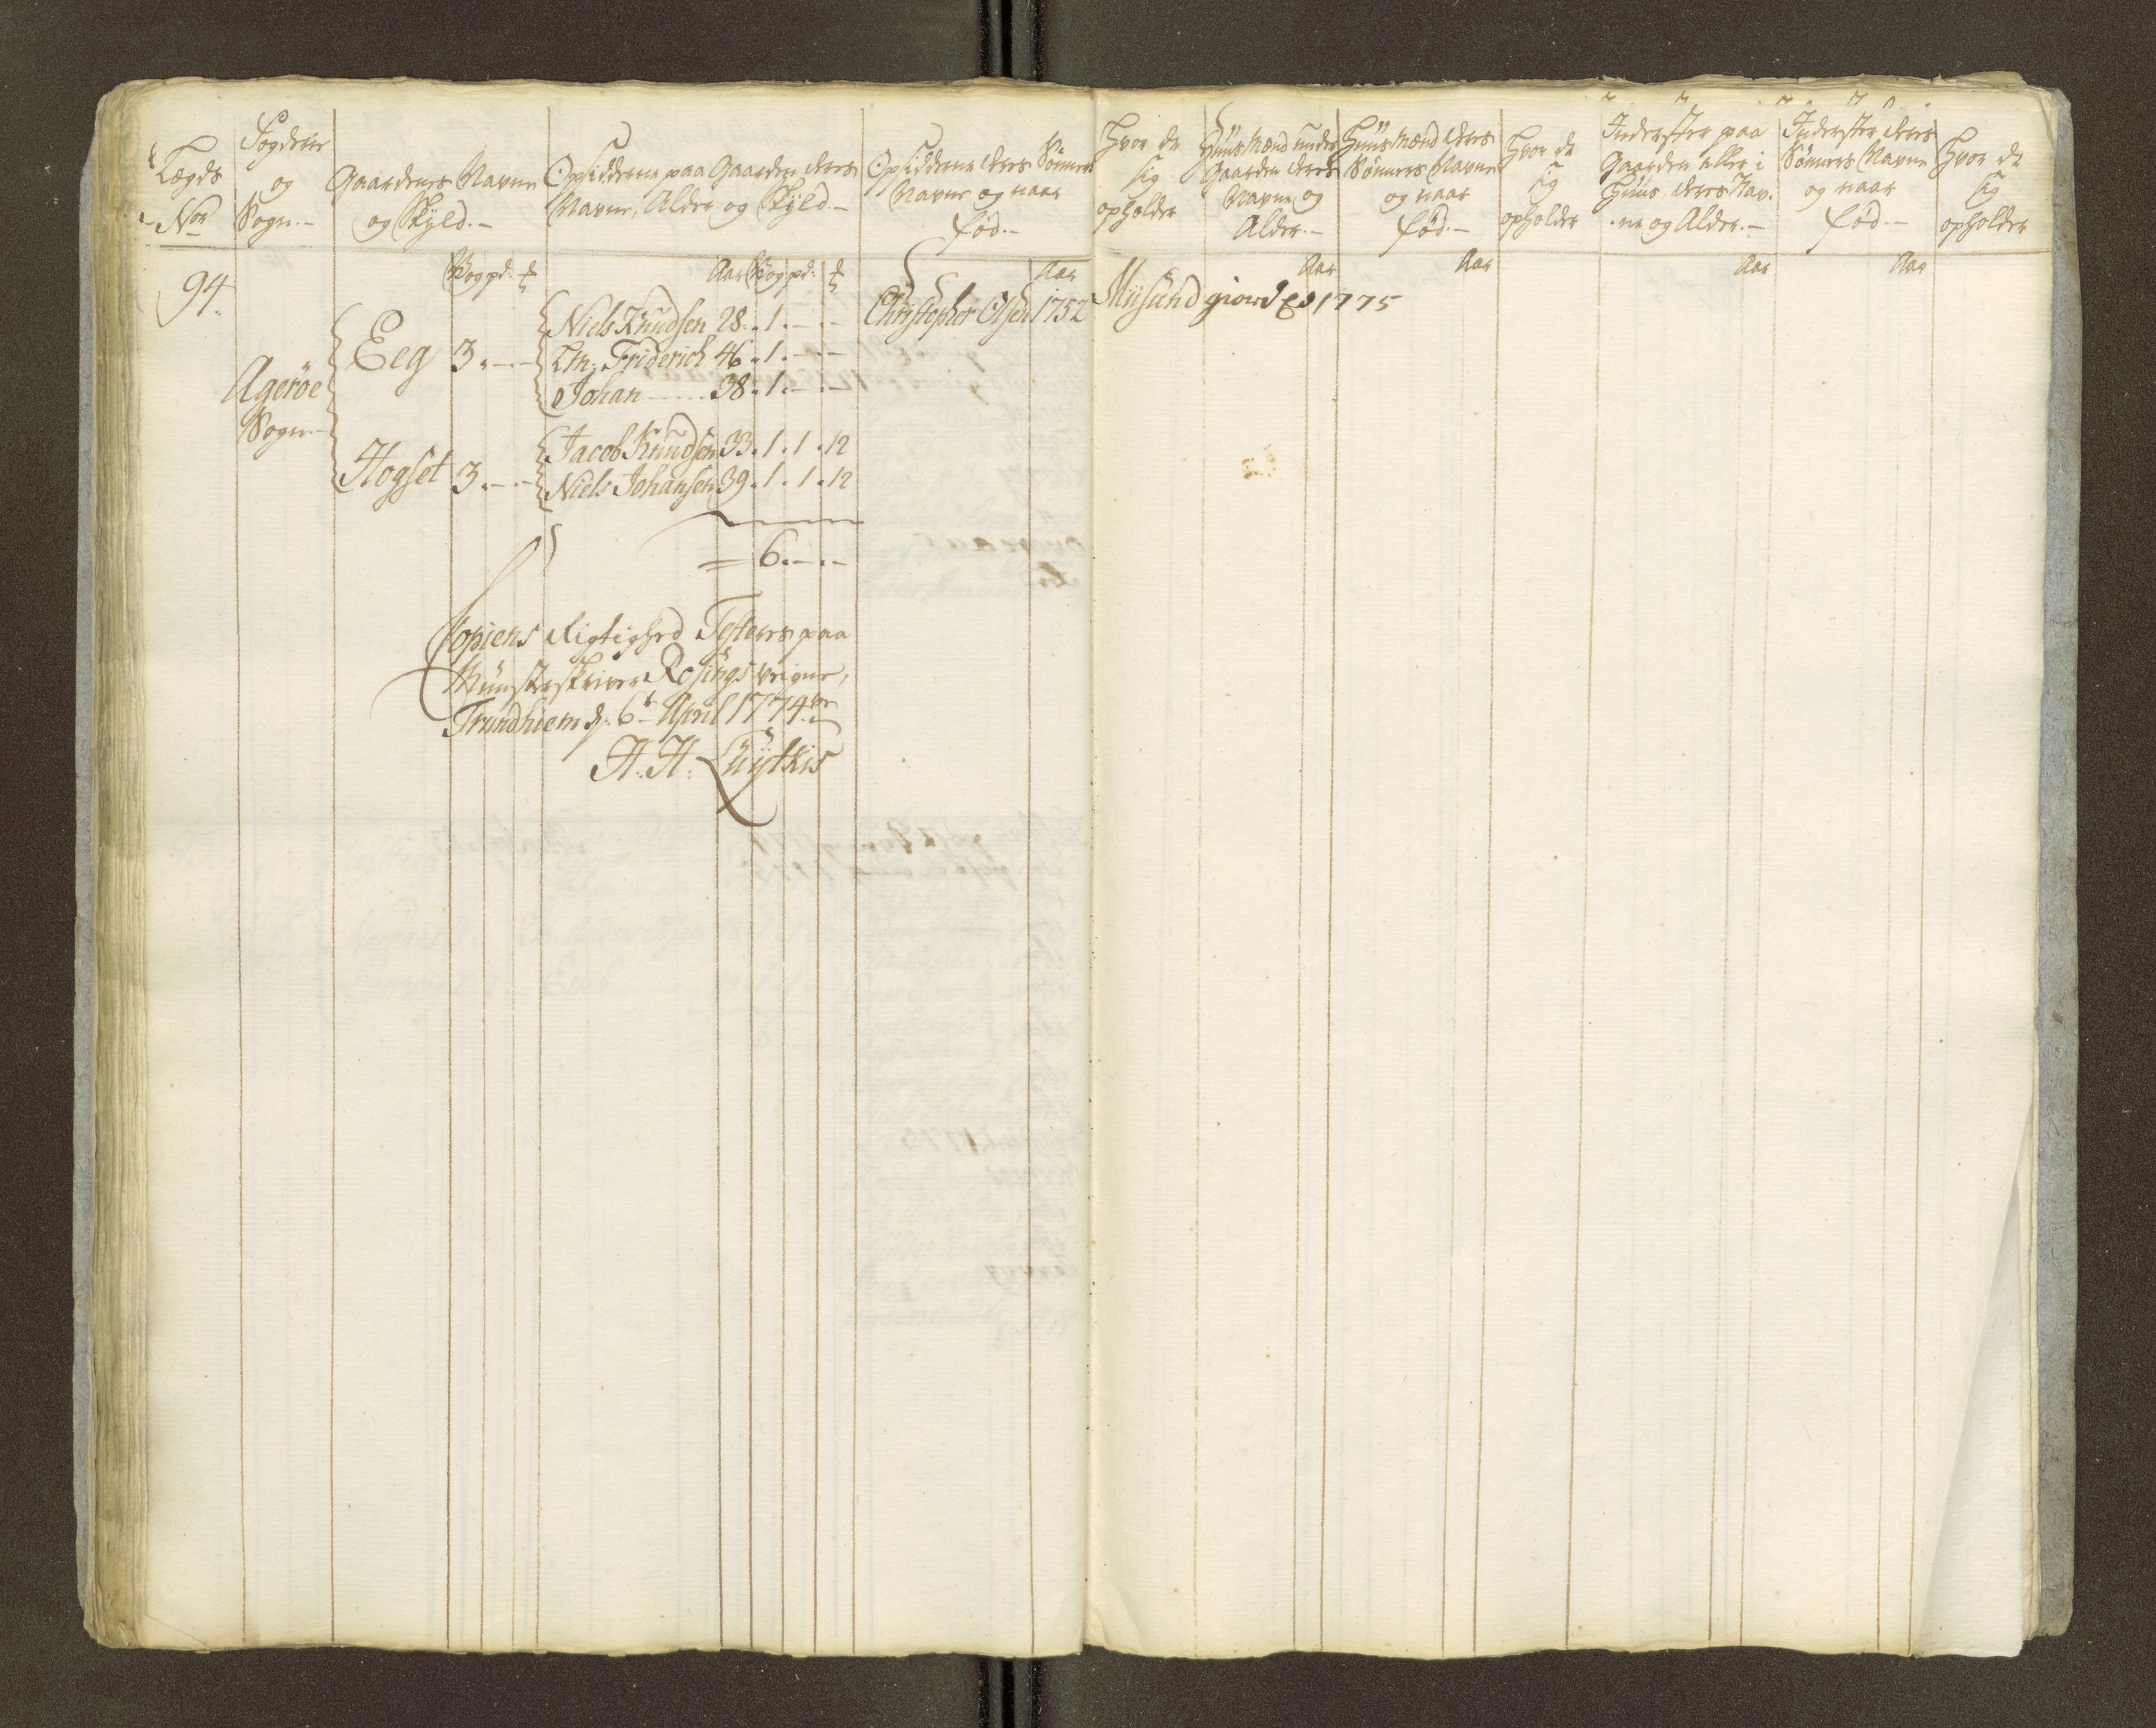 Lægds
No
Fogderie
og
Sogn.-
Gaardenes Navne
og Skyld.-
Opsidderne paa Gaarden deres
Navne, Alder og Skyld.-
Opsidderne deres Sønners
Navne og naar
fød.-
Hvor de
sig
opholder
Huusmænd under
Gaarden deres
Navne og
Alder.-
Huusmænd deres
Sønners Navne
og naar
fød.-
Hvor de
sig
opholder
Inderster paa
Gaarden eller i
Huus deres Nav-
ne og Alder.-
Inderster deres
Sønners Navne
og naar
fød.-
Hvor de
sig
opholder
Wog pd:
Aar Wog pd:
Aar
Aar
Aar
Aar
Aar
94.
Agerøe
Sogn.-
Eeg 3.-.-
Niels Knudsen 28.1.-.-
Ltn: Friderich 46.1.-.-
Johan 38.1.-.-
Christopher Olsen 1752
Miisund giord Ed 1775
Hogset 3.-.-
Jacob Knudsen 33.1.1.12
Niels Johansen 39.1.1.12
= 6.-.-
Copiens Rigtighed Testerer paa
Mynsterskriver Rosings Veigne,
Trundhiem d: 6t April 1774
H: H: Lüytkis